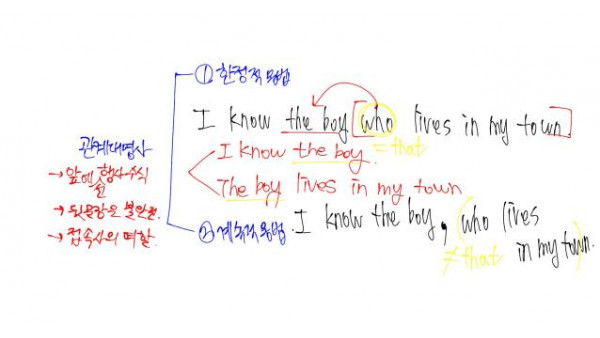 ① 한정적 용법
I know the boy who lives in my town
= that
I know the boy.
The boy lives in my town
관계대명사
→ 앞에 선행사 수식
→ 뒷문장은 불완전.
→ 접속사의 역할.
② 계속적 용법. I know the boy, (who lives
in my town).
≠ that